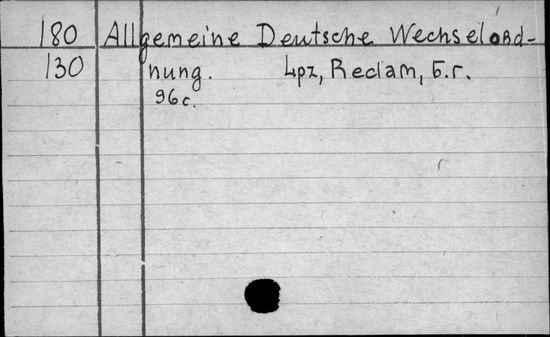 180 Allgemeine Deutsche Wechselord-
130 nung. Lpz, Reclam, б.г.
96 с.